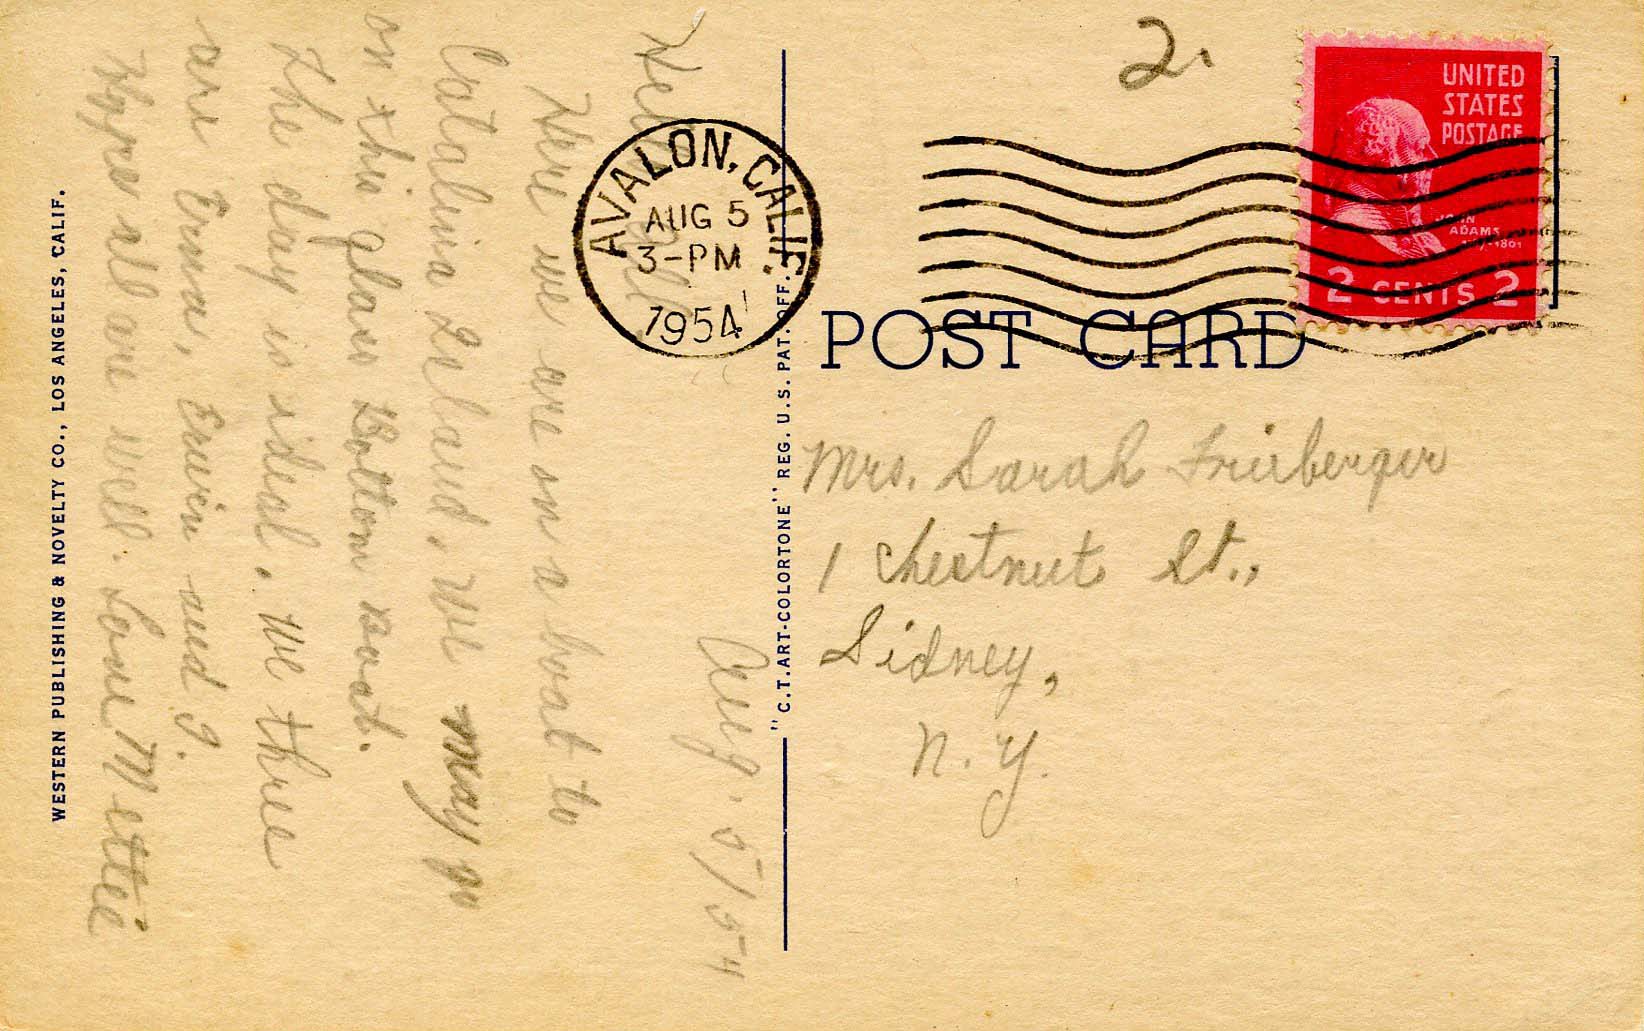 Aug. 5/54
Hello All:
Here we are on a boat to
Catalina Island. We may go
on this glass Bottom boat.
The day is ideal. We three
are Erma, Erwin and I.
Hope all are well. Love Mettie
WESTERN PUBLISHING & NOVELTY CO., LOS ANGELES, CALIF.
"C.T. ART-COLORTONE" REG. U.S. PAT. OFF.
AVALON, CALIF.
AUG 5
3-PM
1954
2.
UNITED
STATES
POSTAGE
JOHN
ADAMS
1797-1801
2 CENTS 2
POST CARD
Mrs. Sarah Frieberger
1 Chestnut St.,
Sidney,
N.Y.